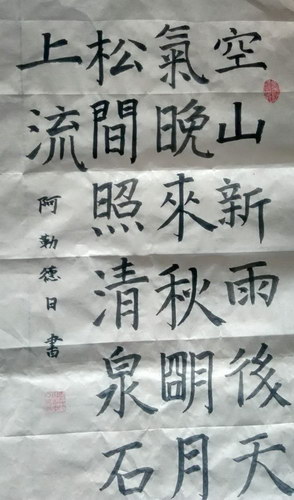 空山新雨後天
氣晚來秋朙月
松間照清泉石
上流
阿勒德日書